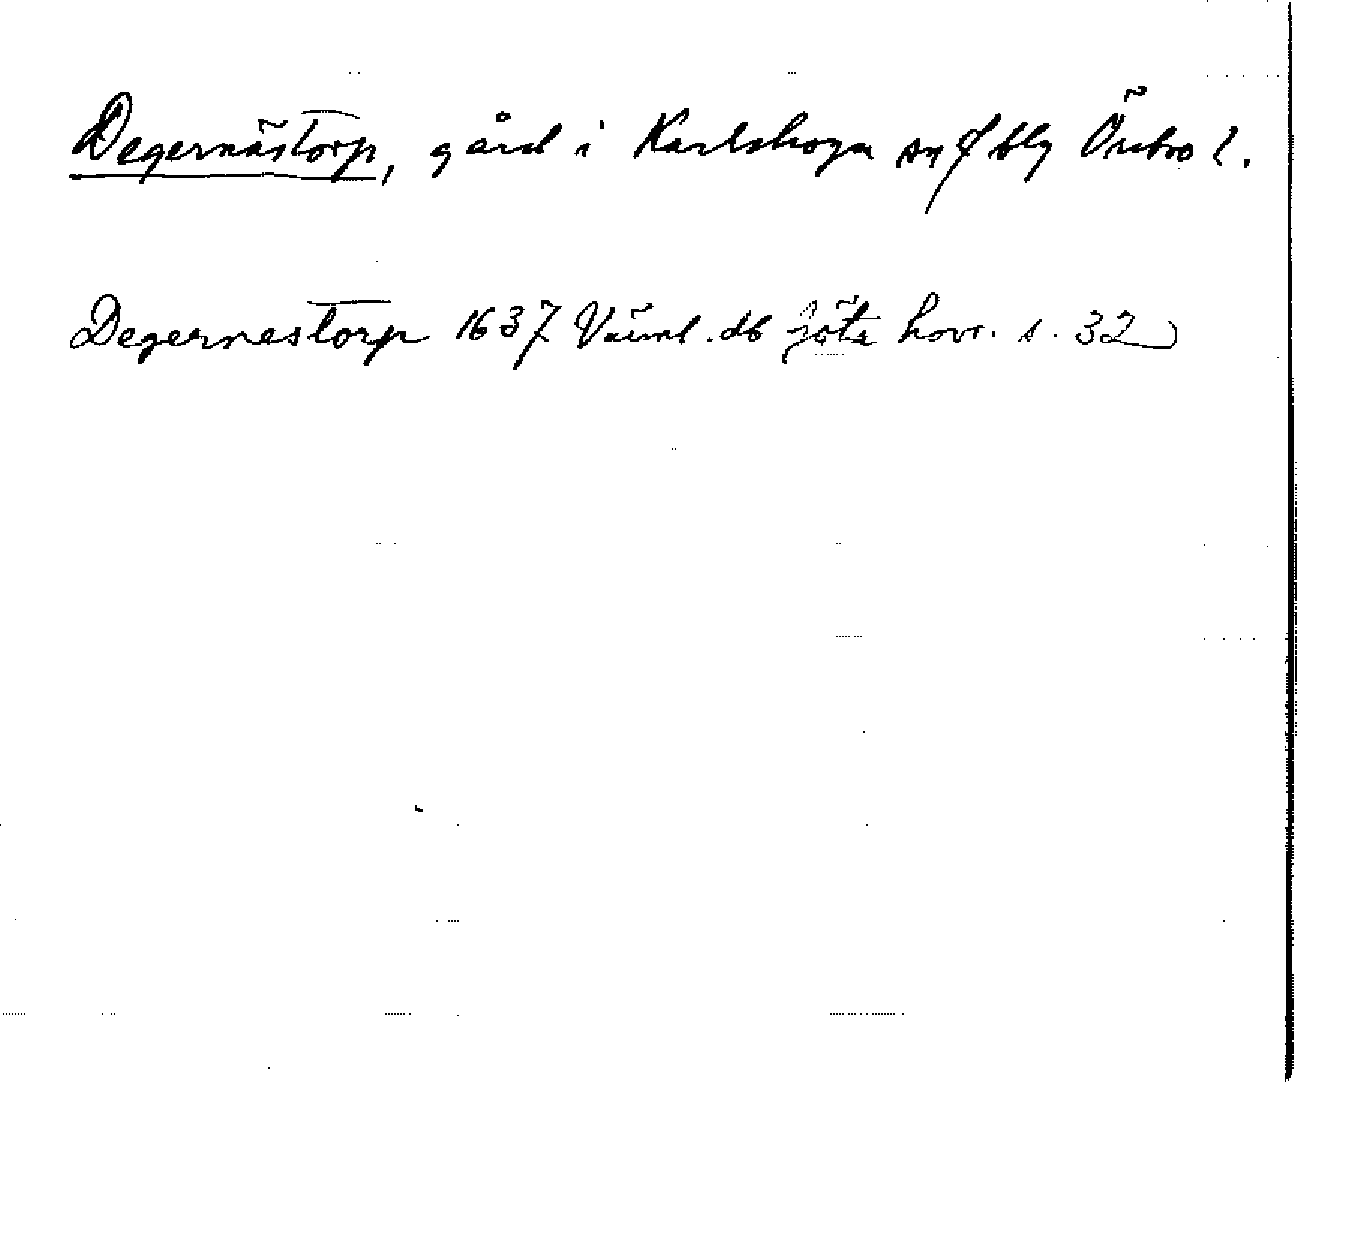 Degernästorp, gård i Karlskoga sn o blg Örebro l.
Degernestorp 1637 Värml. db Göta hovr. s. 32